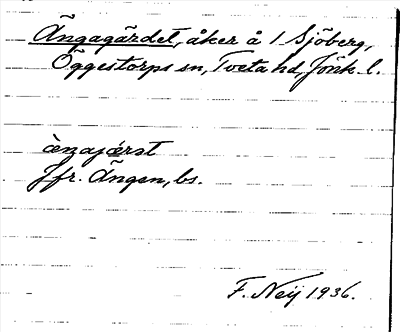 Ängagärdet, åker å 1 Sjöberg,
Öggestorps sn, Tveta hd, Jönk. l.
ænajæ̀rst
Jfr. Ängen, bs.
F. Neij 1936.